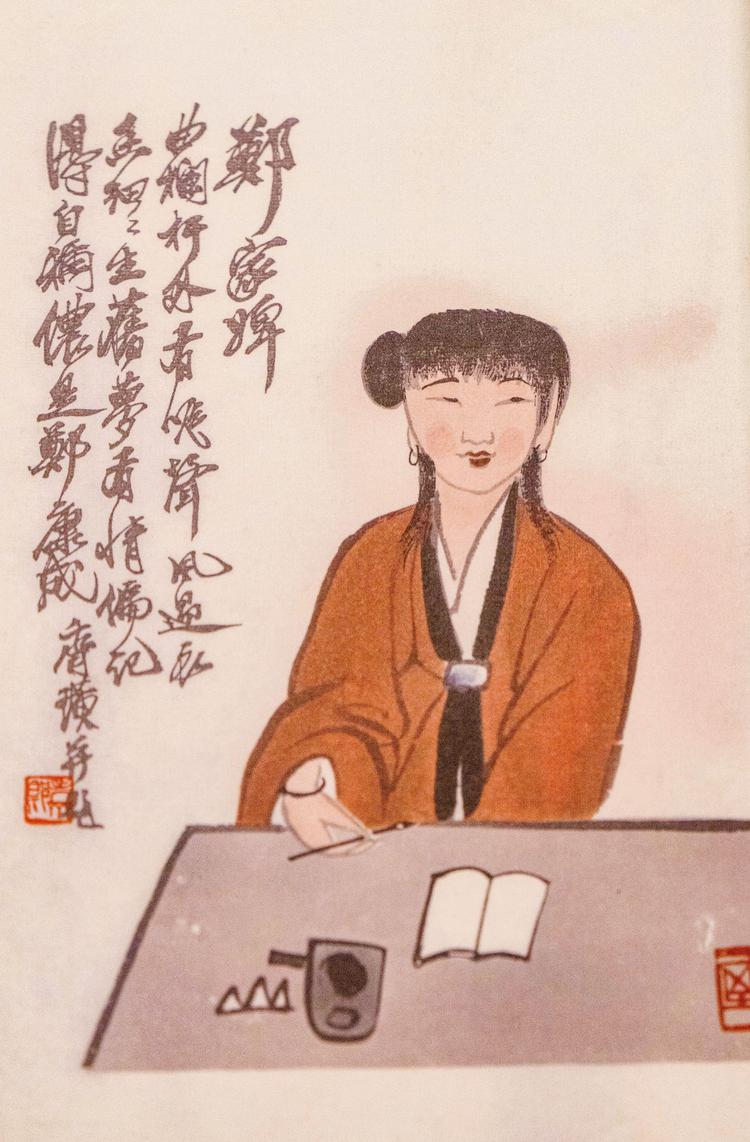 鄭家婢
曲欄杆外有吟聲風過衣
香細々生舊夢有情偏記
得自稱儂是鄭康成 齊璜并題